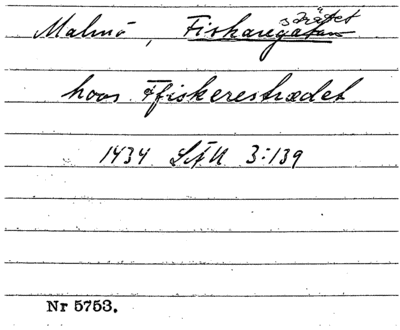 Malmö, Fiskaregatan
strätet
hoos Ffiskerestrædet
1434 LÄU 3:139
Nr 5753.